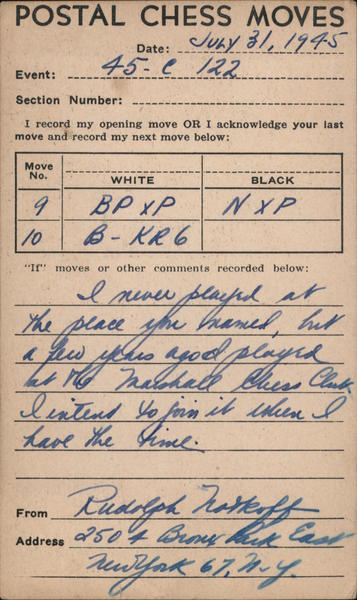 POSTAL CHESS MOVES
Date: JULY 31, 1945
Event: 45-C 122
Section Number:
I record my opening move OR I acknowledge your last
move and record my next move below:
Move No. WHITE BLACK
9 BPxP NxP
10 B-KR6
"If" moves or other comments recorded below:
I never played at
the place you named, but
a few years ago I played
at the Marshall Chess Club
I intend to join it when I
have the time.
From Rudolph
Address 2504 Bronx Park East
New York 67, N-Y.